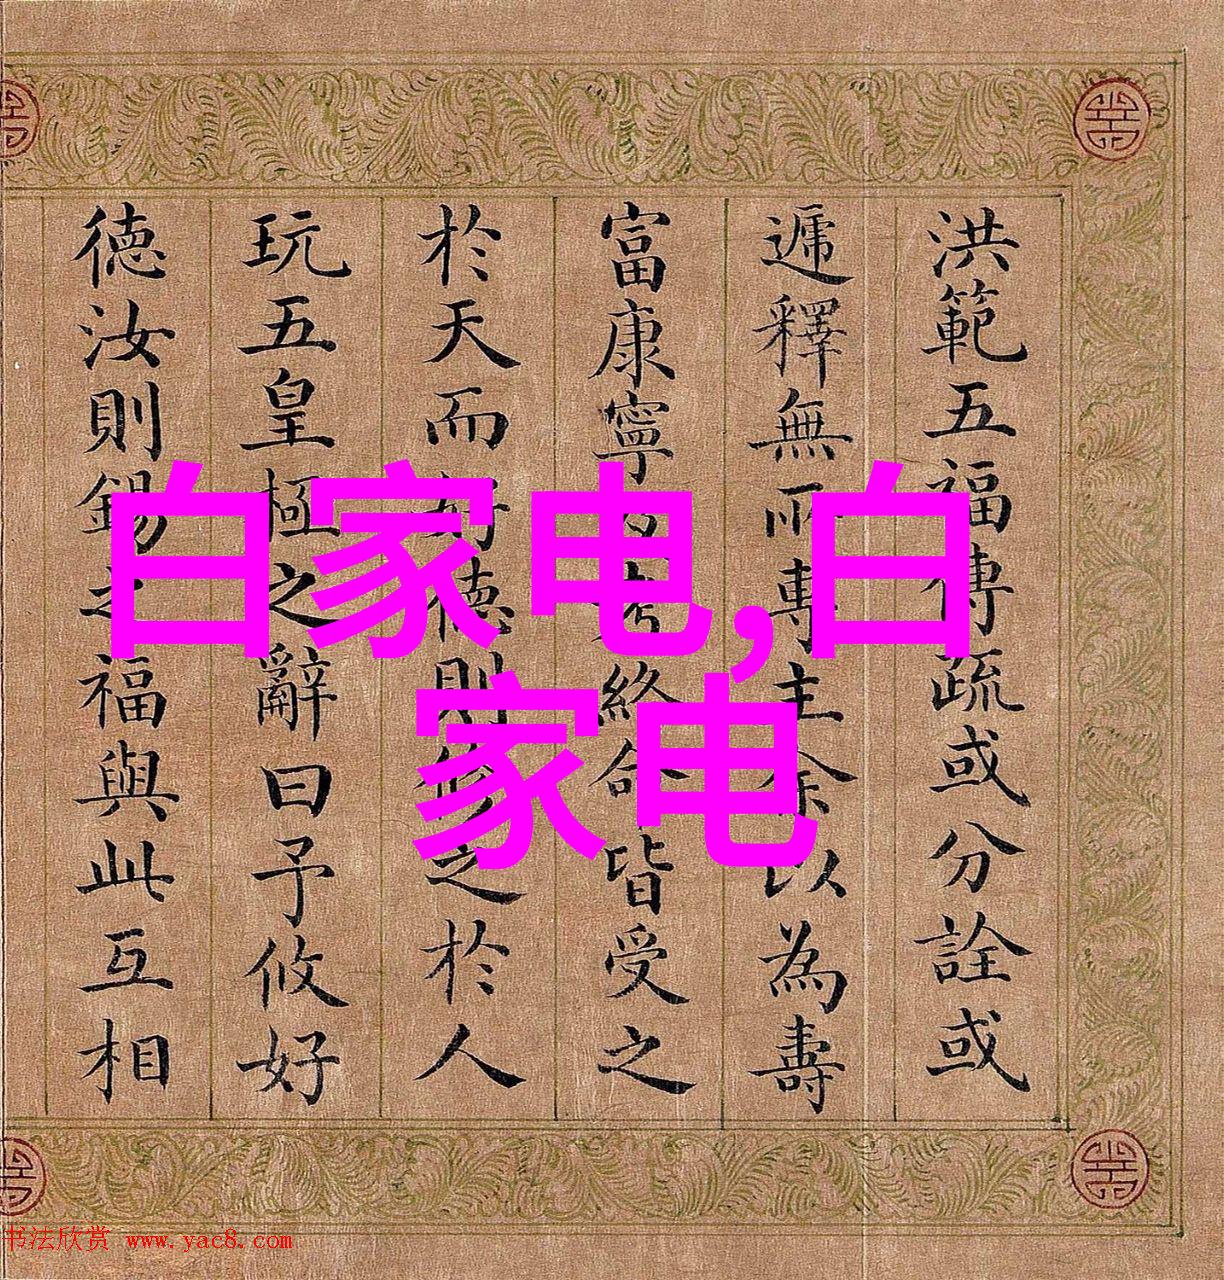 洪範五福傳疏或分詮或
遞釋無兩專主余以為壽
富康寧攸好德考終命皆受之
於天而好德則修之於人
玩五皇極之辭曰予攸好
德汝則錫之福與此互相
白家电,白
家电
书法欣赏 www.yac8.com